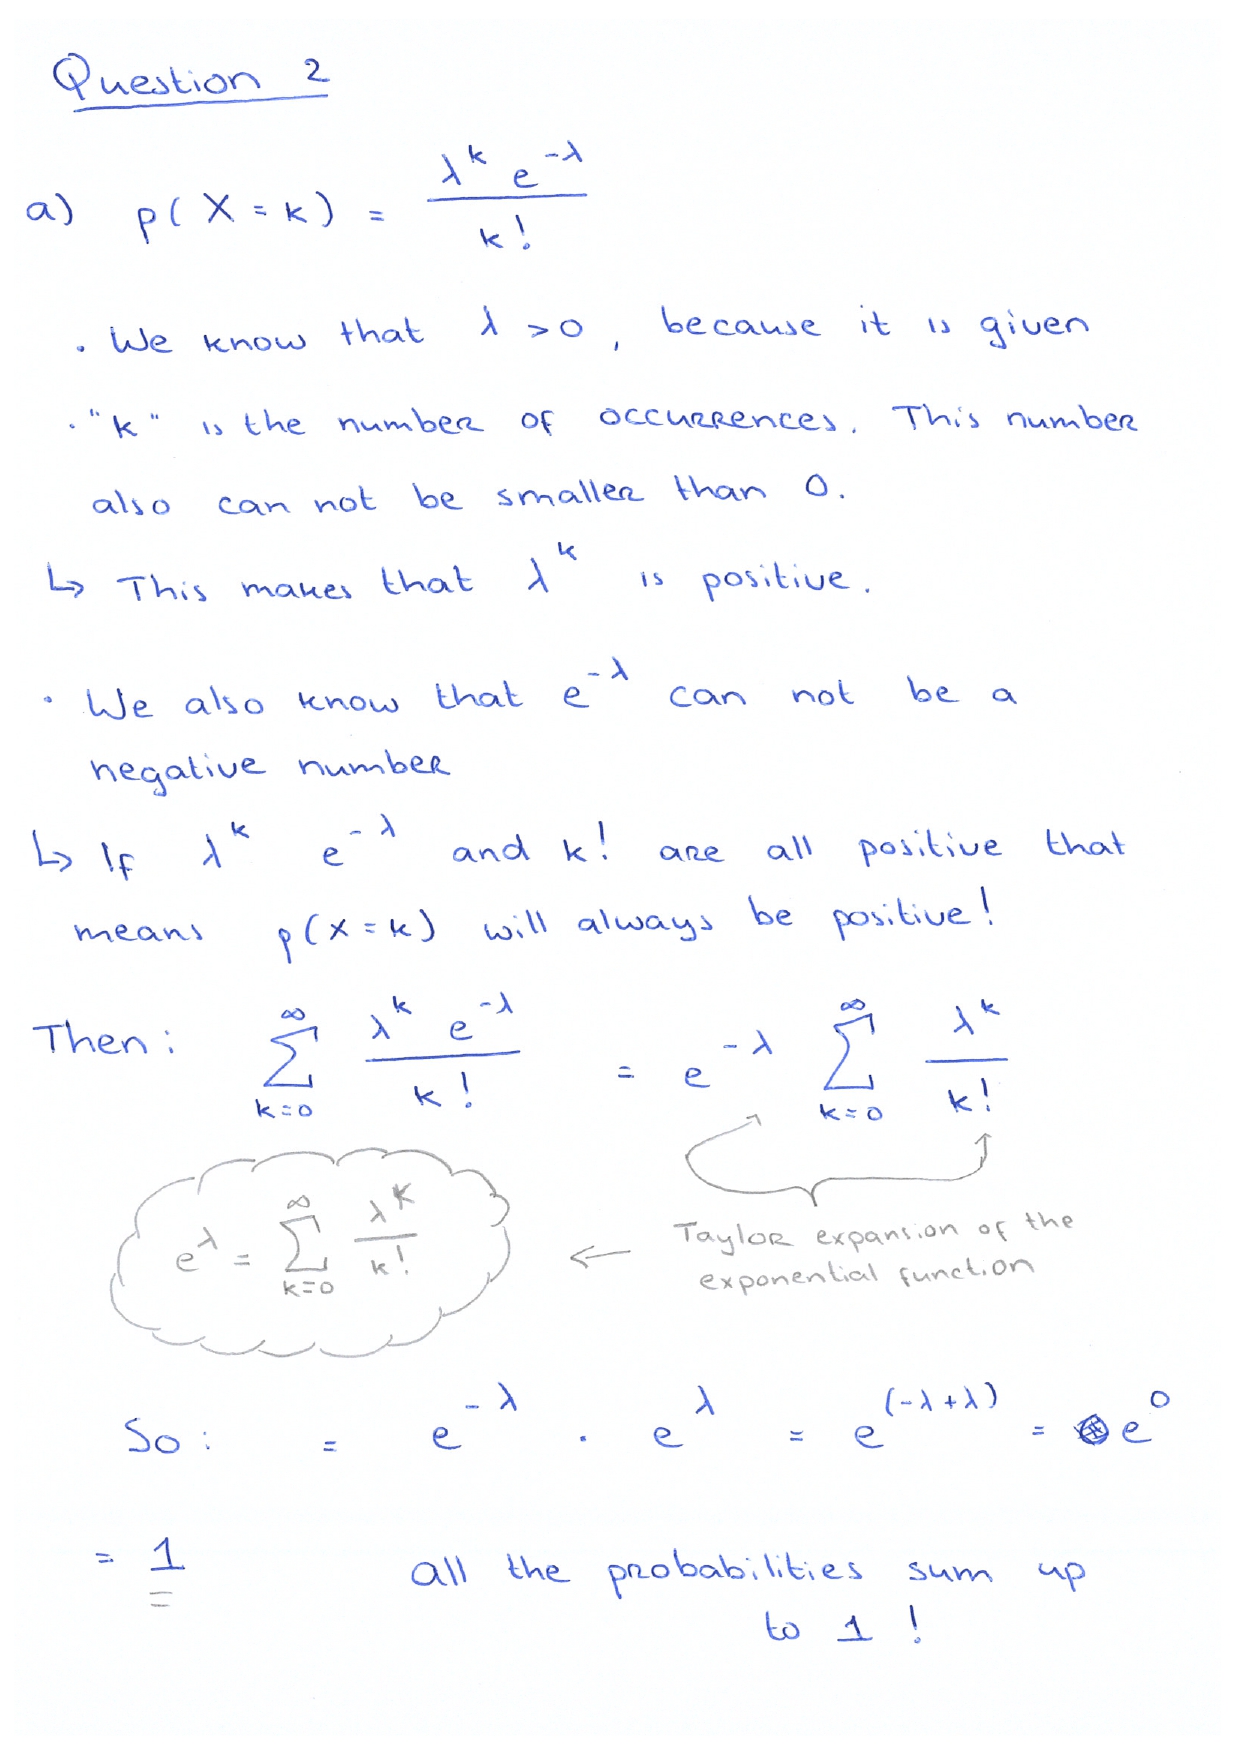 Question 2
a) p(X = k) = λ^k e^-λ / k!
. We know that λ > 0, because it is given
. "k" is the number of occurrences. This number
also can not be smaller than 0.
↳ This makes that λ^k is positive.
. We also know that e^-λ can not be a
negative number
↳ If λ^k e^-λ and k! are all positive that
means p(X = k) will always be positive!
Then: ∑_{k=0}^∞ λ^k e^-λ / k! = e^-λ ∑_{k=0}^∞ λ^k / k!
e^λ = ∑_{k=0}^∞ λ^k / k! ← Taylor expansion of the
exponential function
So: = e^-λ . e^λ = e^(-λ+λ) = e^0
= 1 all the probabilities sum up
to 1 !